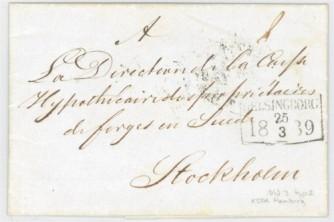 A
La Direction de la Caisse
Hypothécaire des propriétaires
de forges en Suède
Stockholm
HELSINGBORG
25
18 3 39
Hamburg